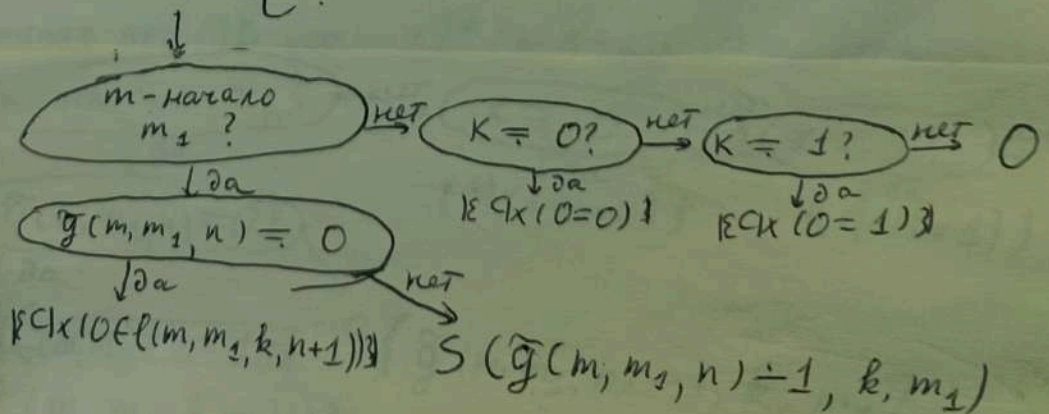 m-начало
m₁ ?
нет
K = 0?
нет
K = 1?
нет
0
да
да
да
g̃(m, m₁, n) = 0
(0=0)
(0=1)
да
нет
(m, m₁, k, n+1))
S (g̃(m, m₁, n) ∸ 1, k, m₁)